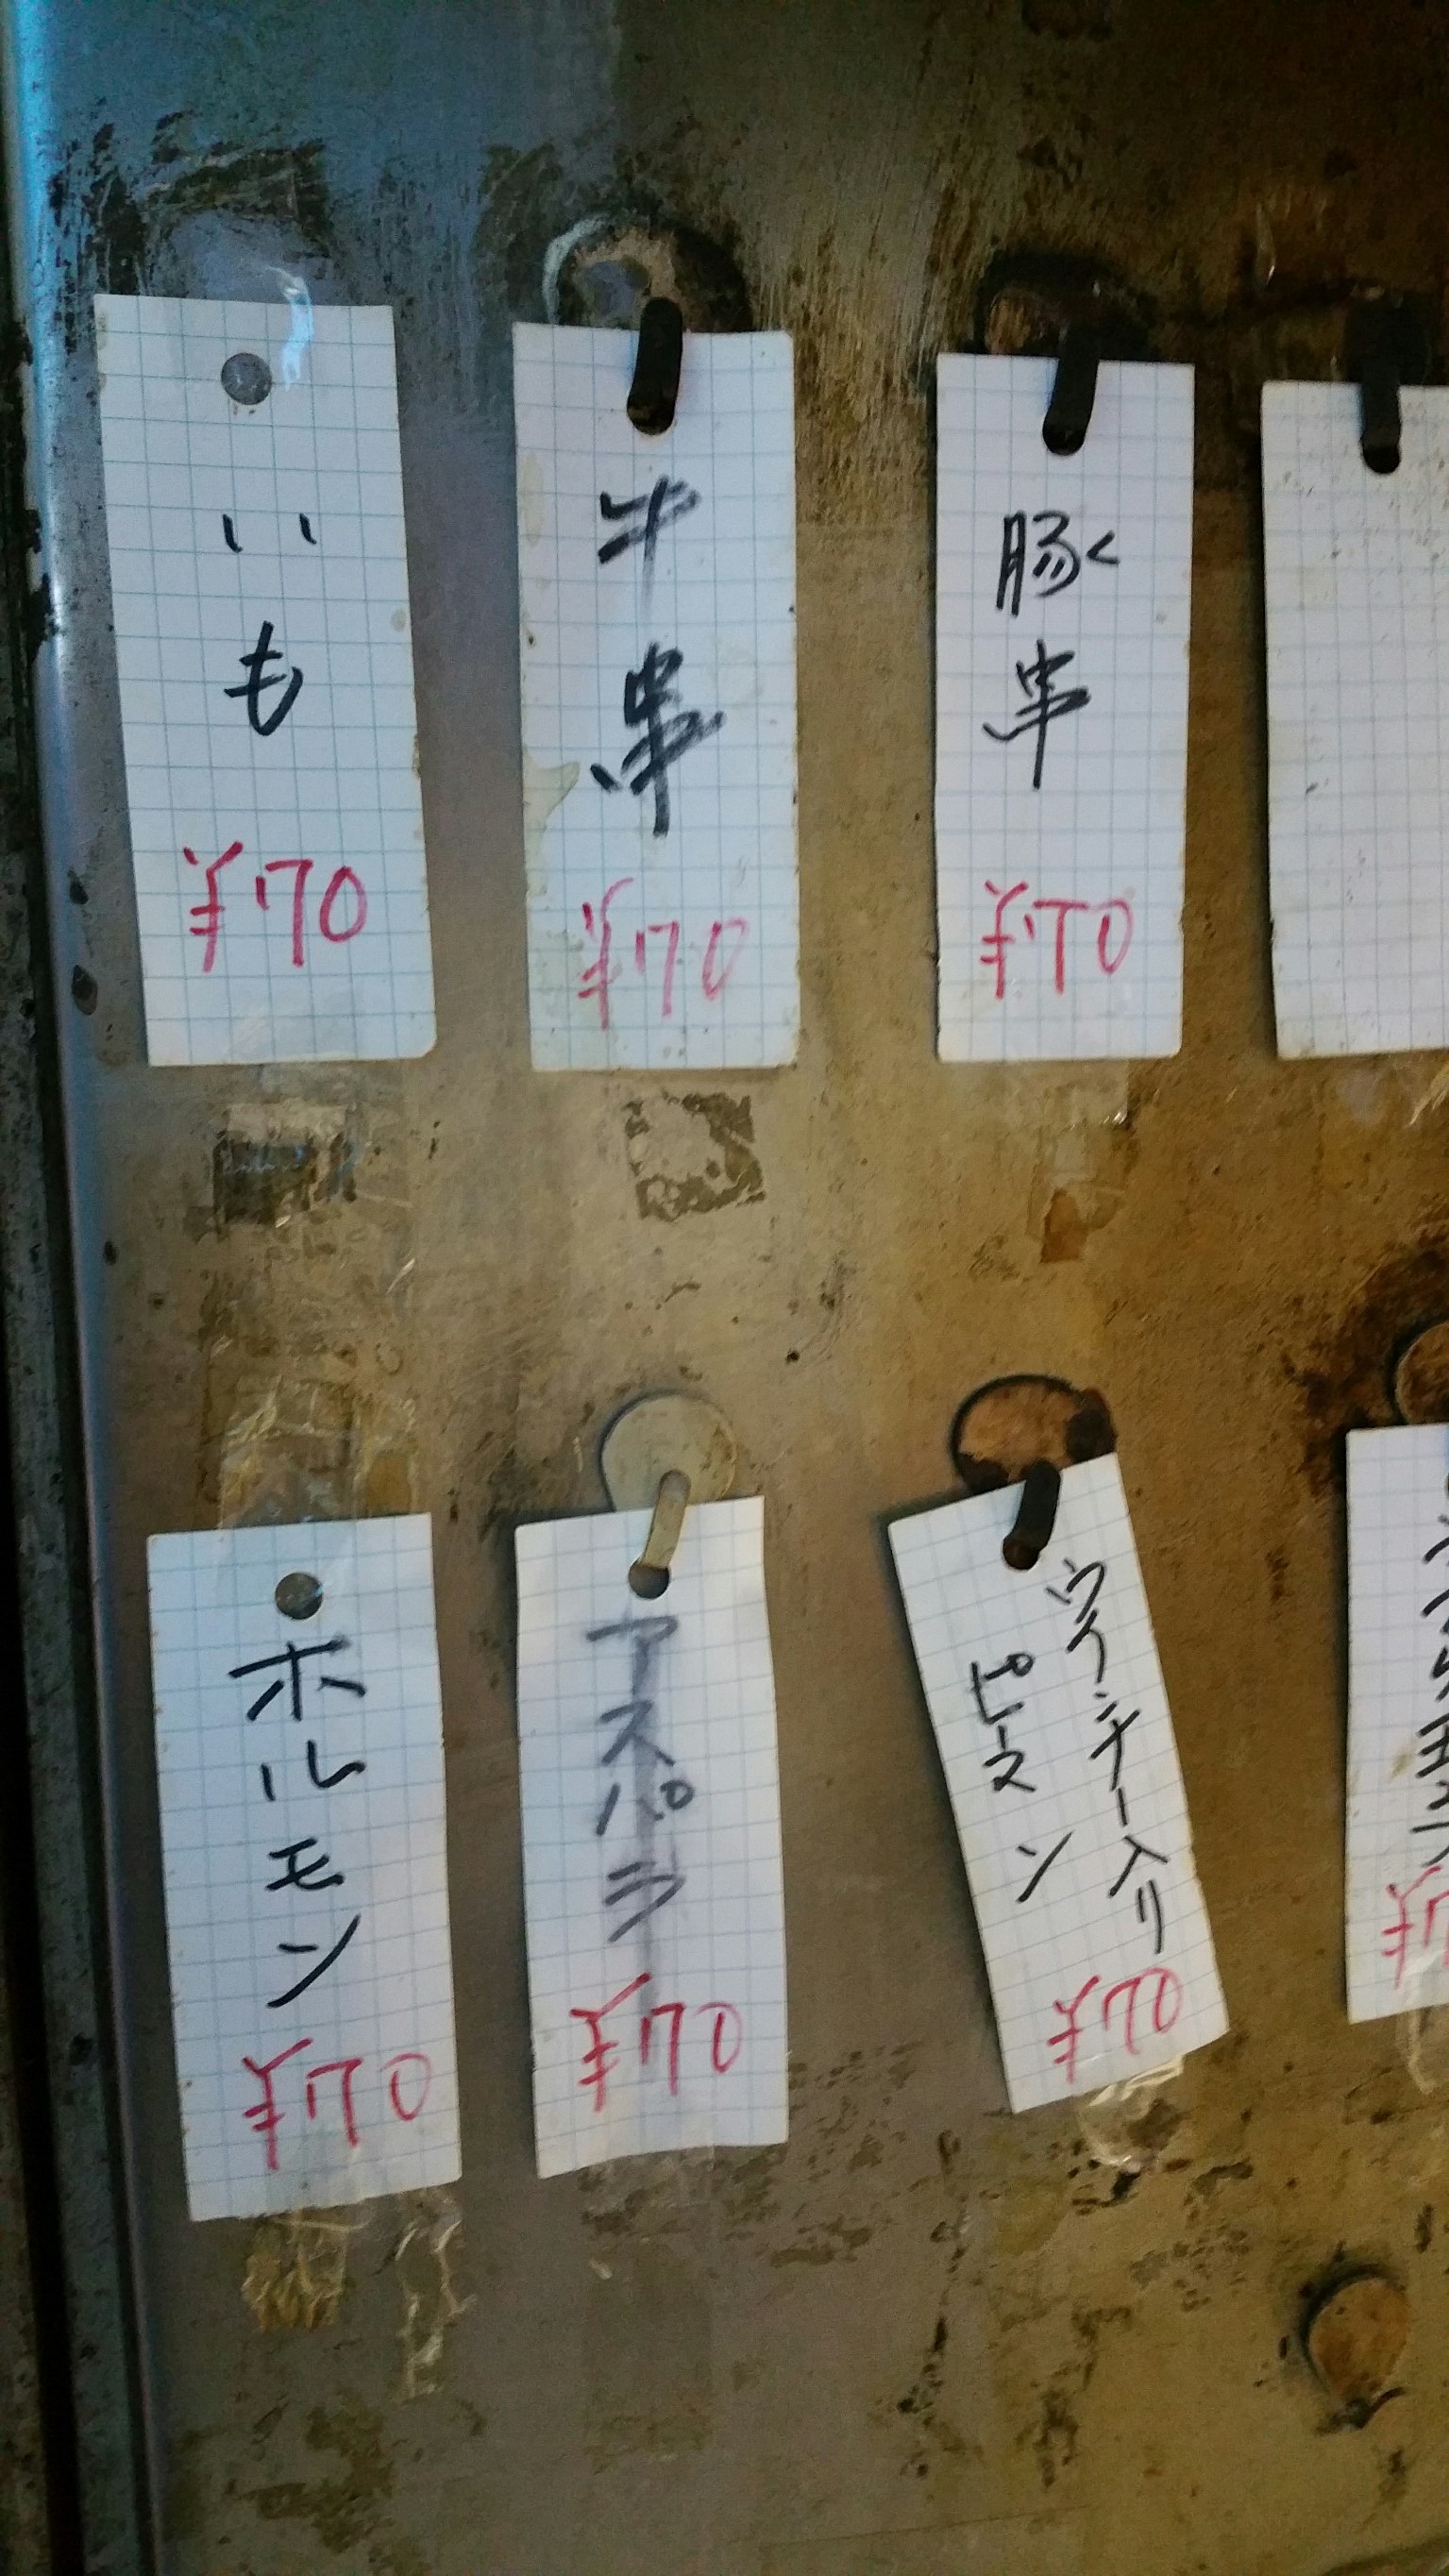 いも
¥70
牛串
¥70
豚く串
¥70
ホルモン
¥70
アスパラ
¥70
ウインナー入り
ピーマン
¥70
¥7